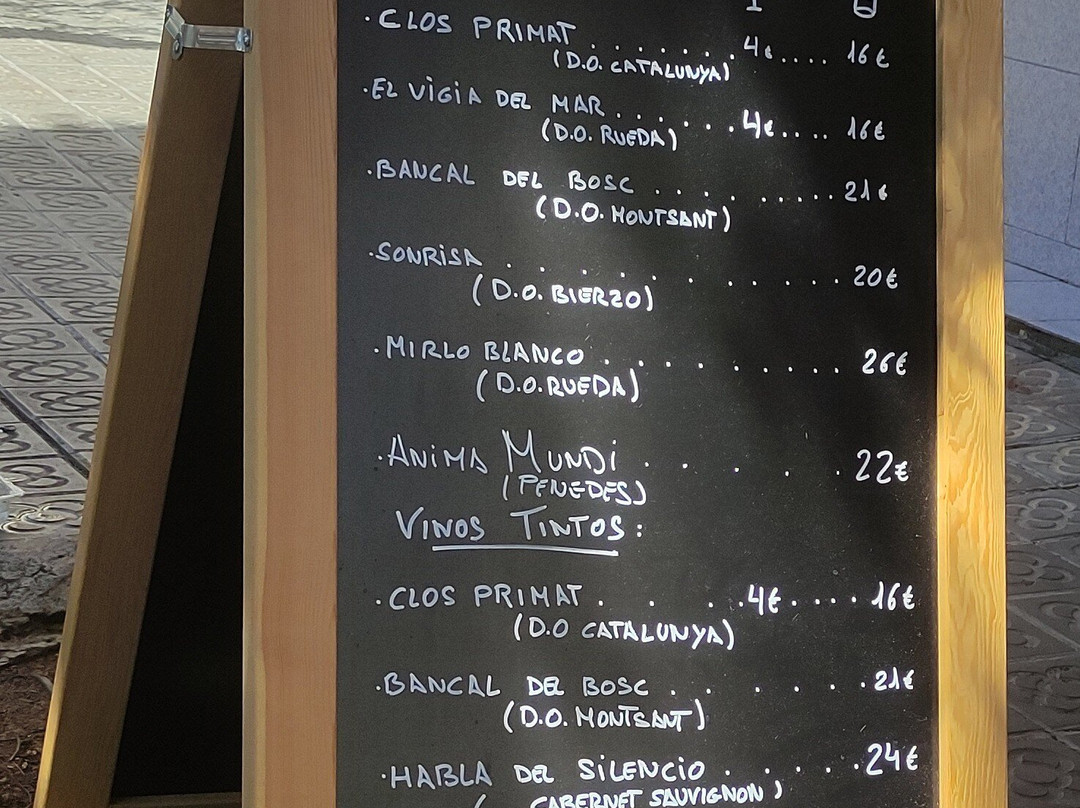 · CLOS PRIMAT ....... 4€ .... 16€
(D.O. CATALUNYA)
· EL VIGIA DEL MAR ....... 4€ .... 16€
(D.O. RUEDA)
· BANCAL DEL BOSC ......... 21€
(D.O. MONTSANT)
· SONRISA .......... 20€
(D.O. BIERZO)
· MIRLO BLANCO ......... 26€
(D.O. RUEDA)
· ANIMA MUNDI ..... 22€
(PENEDES)
VINOS TINTOS:
· CLOS PRIMAT .... 4€ .... 16€
(D.O CATALUNYA)
· BANCAL DEL BOSC ...... 21€
(D.O. MONTSANT)
· HABLA DEL SILENCIO ..... 24€
( CABERNET SAUVIGNON )